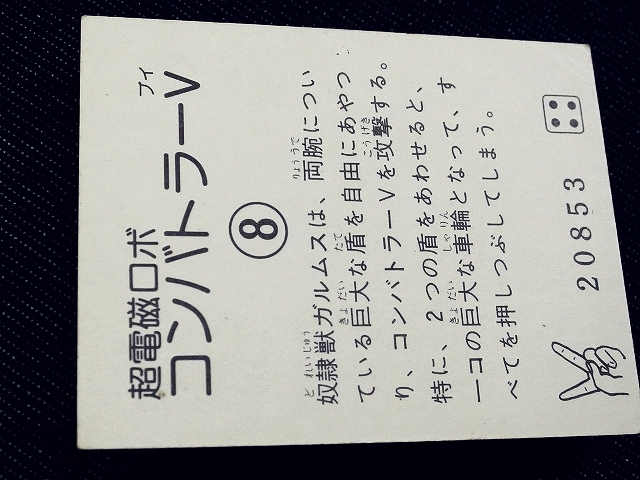 超電磁ロボ
コンバトラーV
ブイ
⑧
奴隷獣ガルムスは、両腕につい
ている巨大な盾を自由にあやつ
り、コンバトラーVを攻撃する。
特に、2つの盾をあわせると、
一コの巨大な車輪となって、す
べてを押しつぶしてしまう。
20853